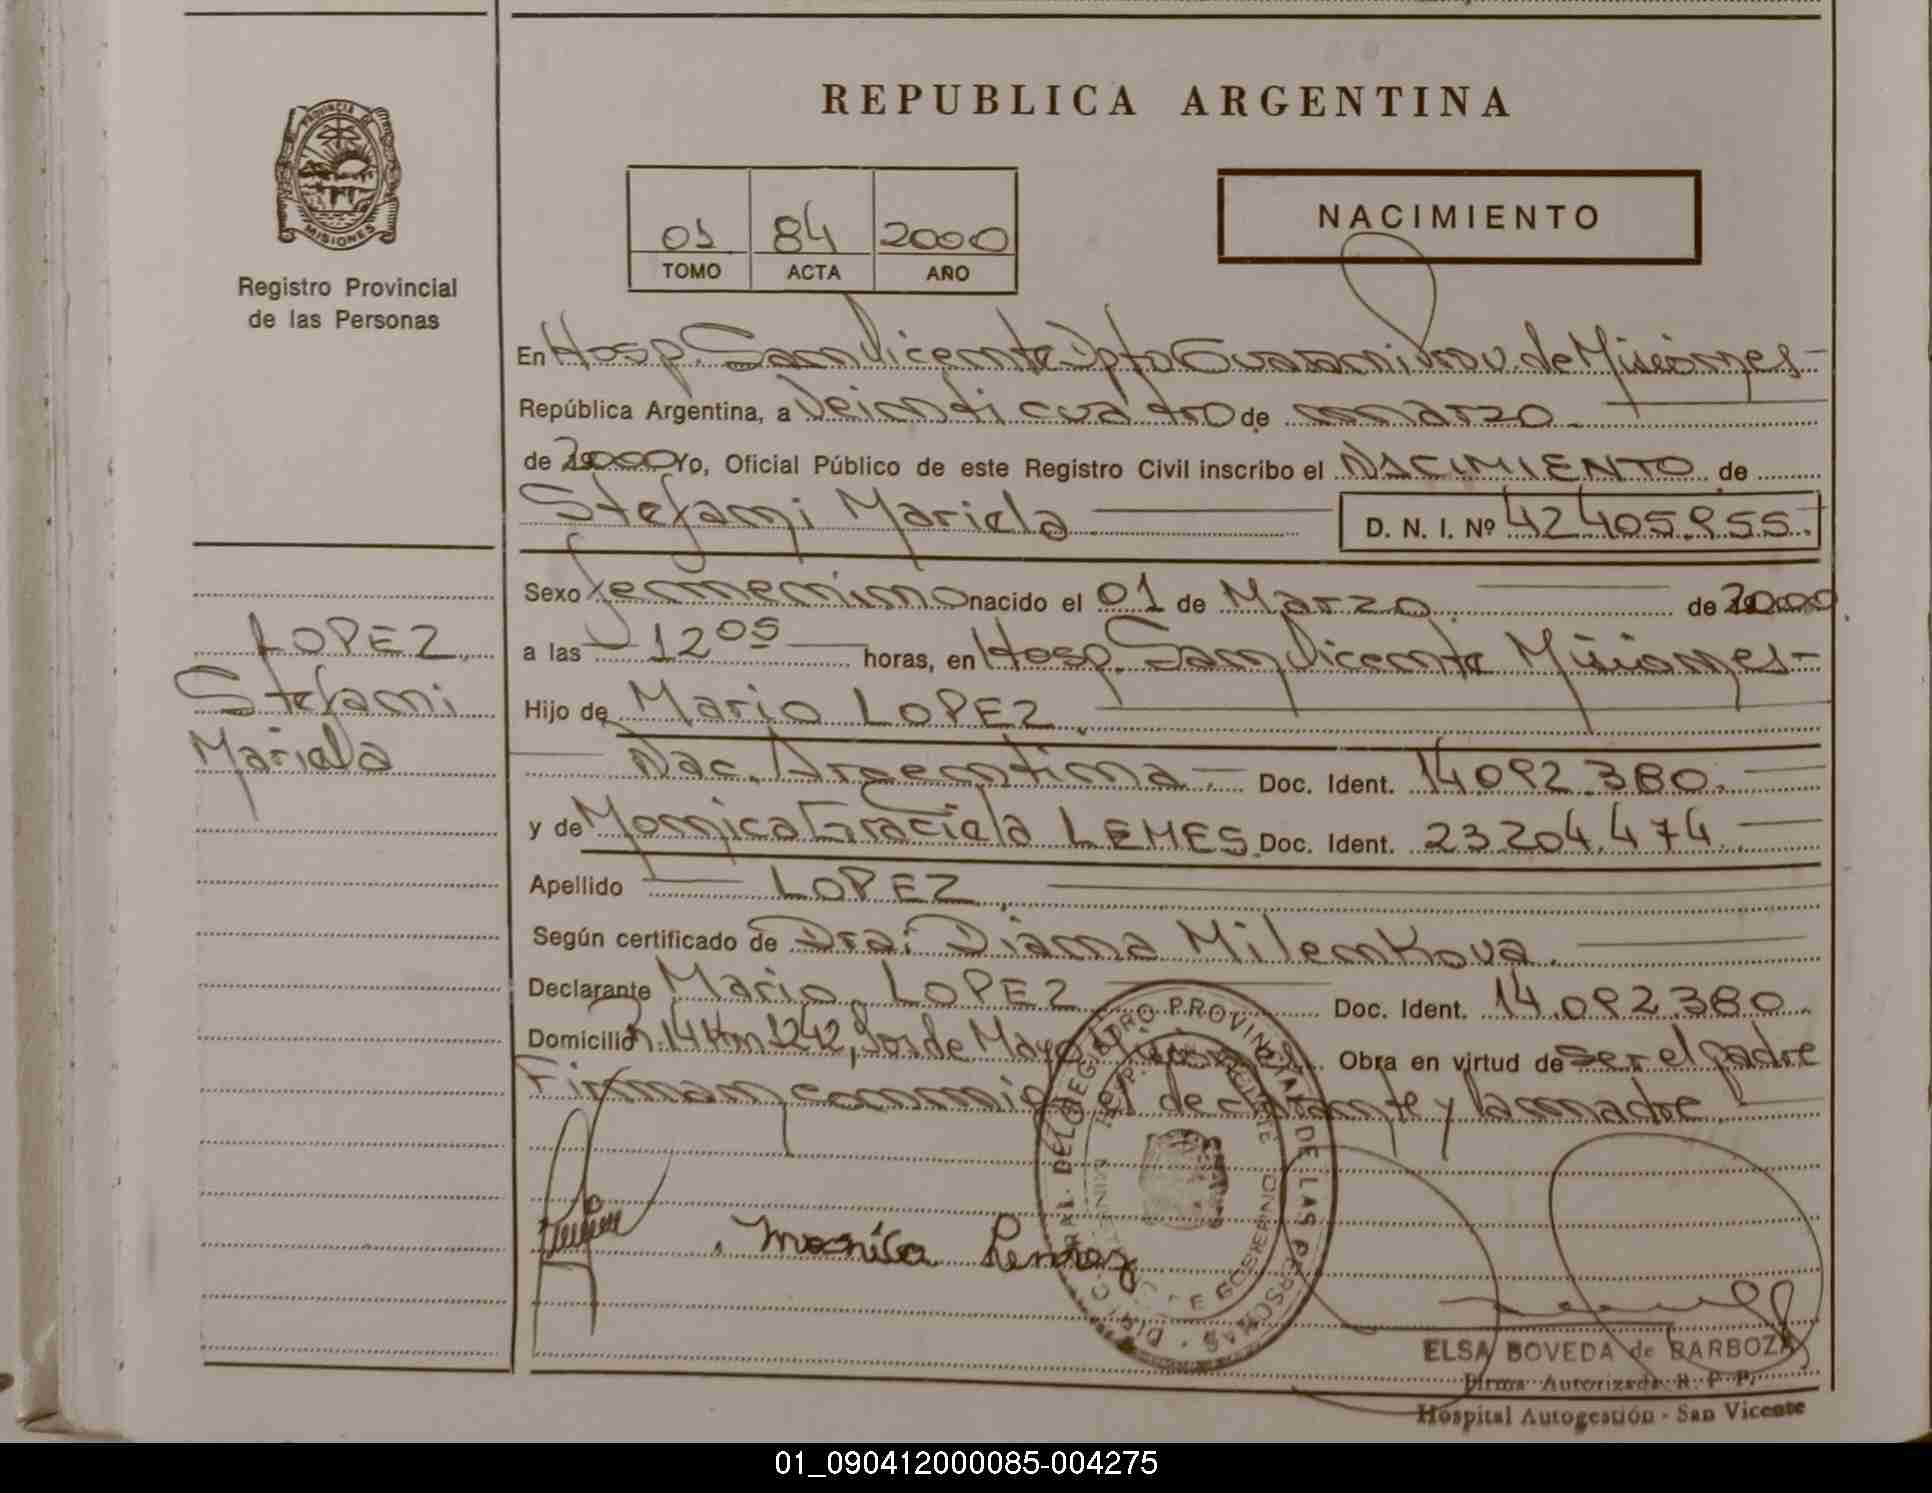 REPUBLICA ARGENTINA
PROVINCIA DE
MISIONES
Registro Provincial
de las Personas
01 84 2000
TOMO ACTA AÑO
NACIMIENTO
En Hosp. San Vicente Dpto Guarani Prov. de Misiones-
República Argentina, a Veinticuatro de marzo
de 2000 Yo, Oficial Público de este Registro Civil inscribo el NACIMIENTO de
Stefani Mariela D. N. I. Nº 42405.955.
Sexo femenino nacido el 01 de Marzo de 2000
a las 12 05 horas, en Hosp. San Vicente Misiones-
Hijo de Mario LOPEZ
Nac. Argentina.- Doc. Ident. 14092.380.
y de Monica Graciela LEMES. Doc. Ident. 23.204.474.
Apellido LOPEZ
Según certificado de Dra: Diana Milenkova.
Declarante Mario LOPEZ Doc. Ident. 14.092.380.
Domicilio R.14 Km 1242, Dos de Mayo Misiones. Obra en virtud de ser el padre
Firman conmigo el declarante y la madre
LOPEZ
Stefani
Mariela
Monica Lemes
REGISTRO PROVINCIAL DE LAS PERSONAS
ELSA BOVEDA de BARBOZA
Firma Autorizada R. P. P.
Hospital Autogestión - San Vicente
01_090412000085-004275